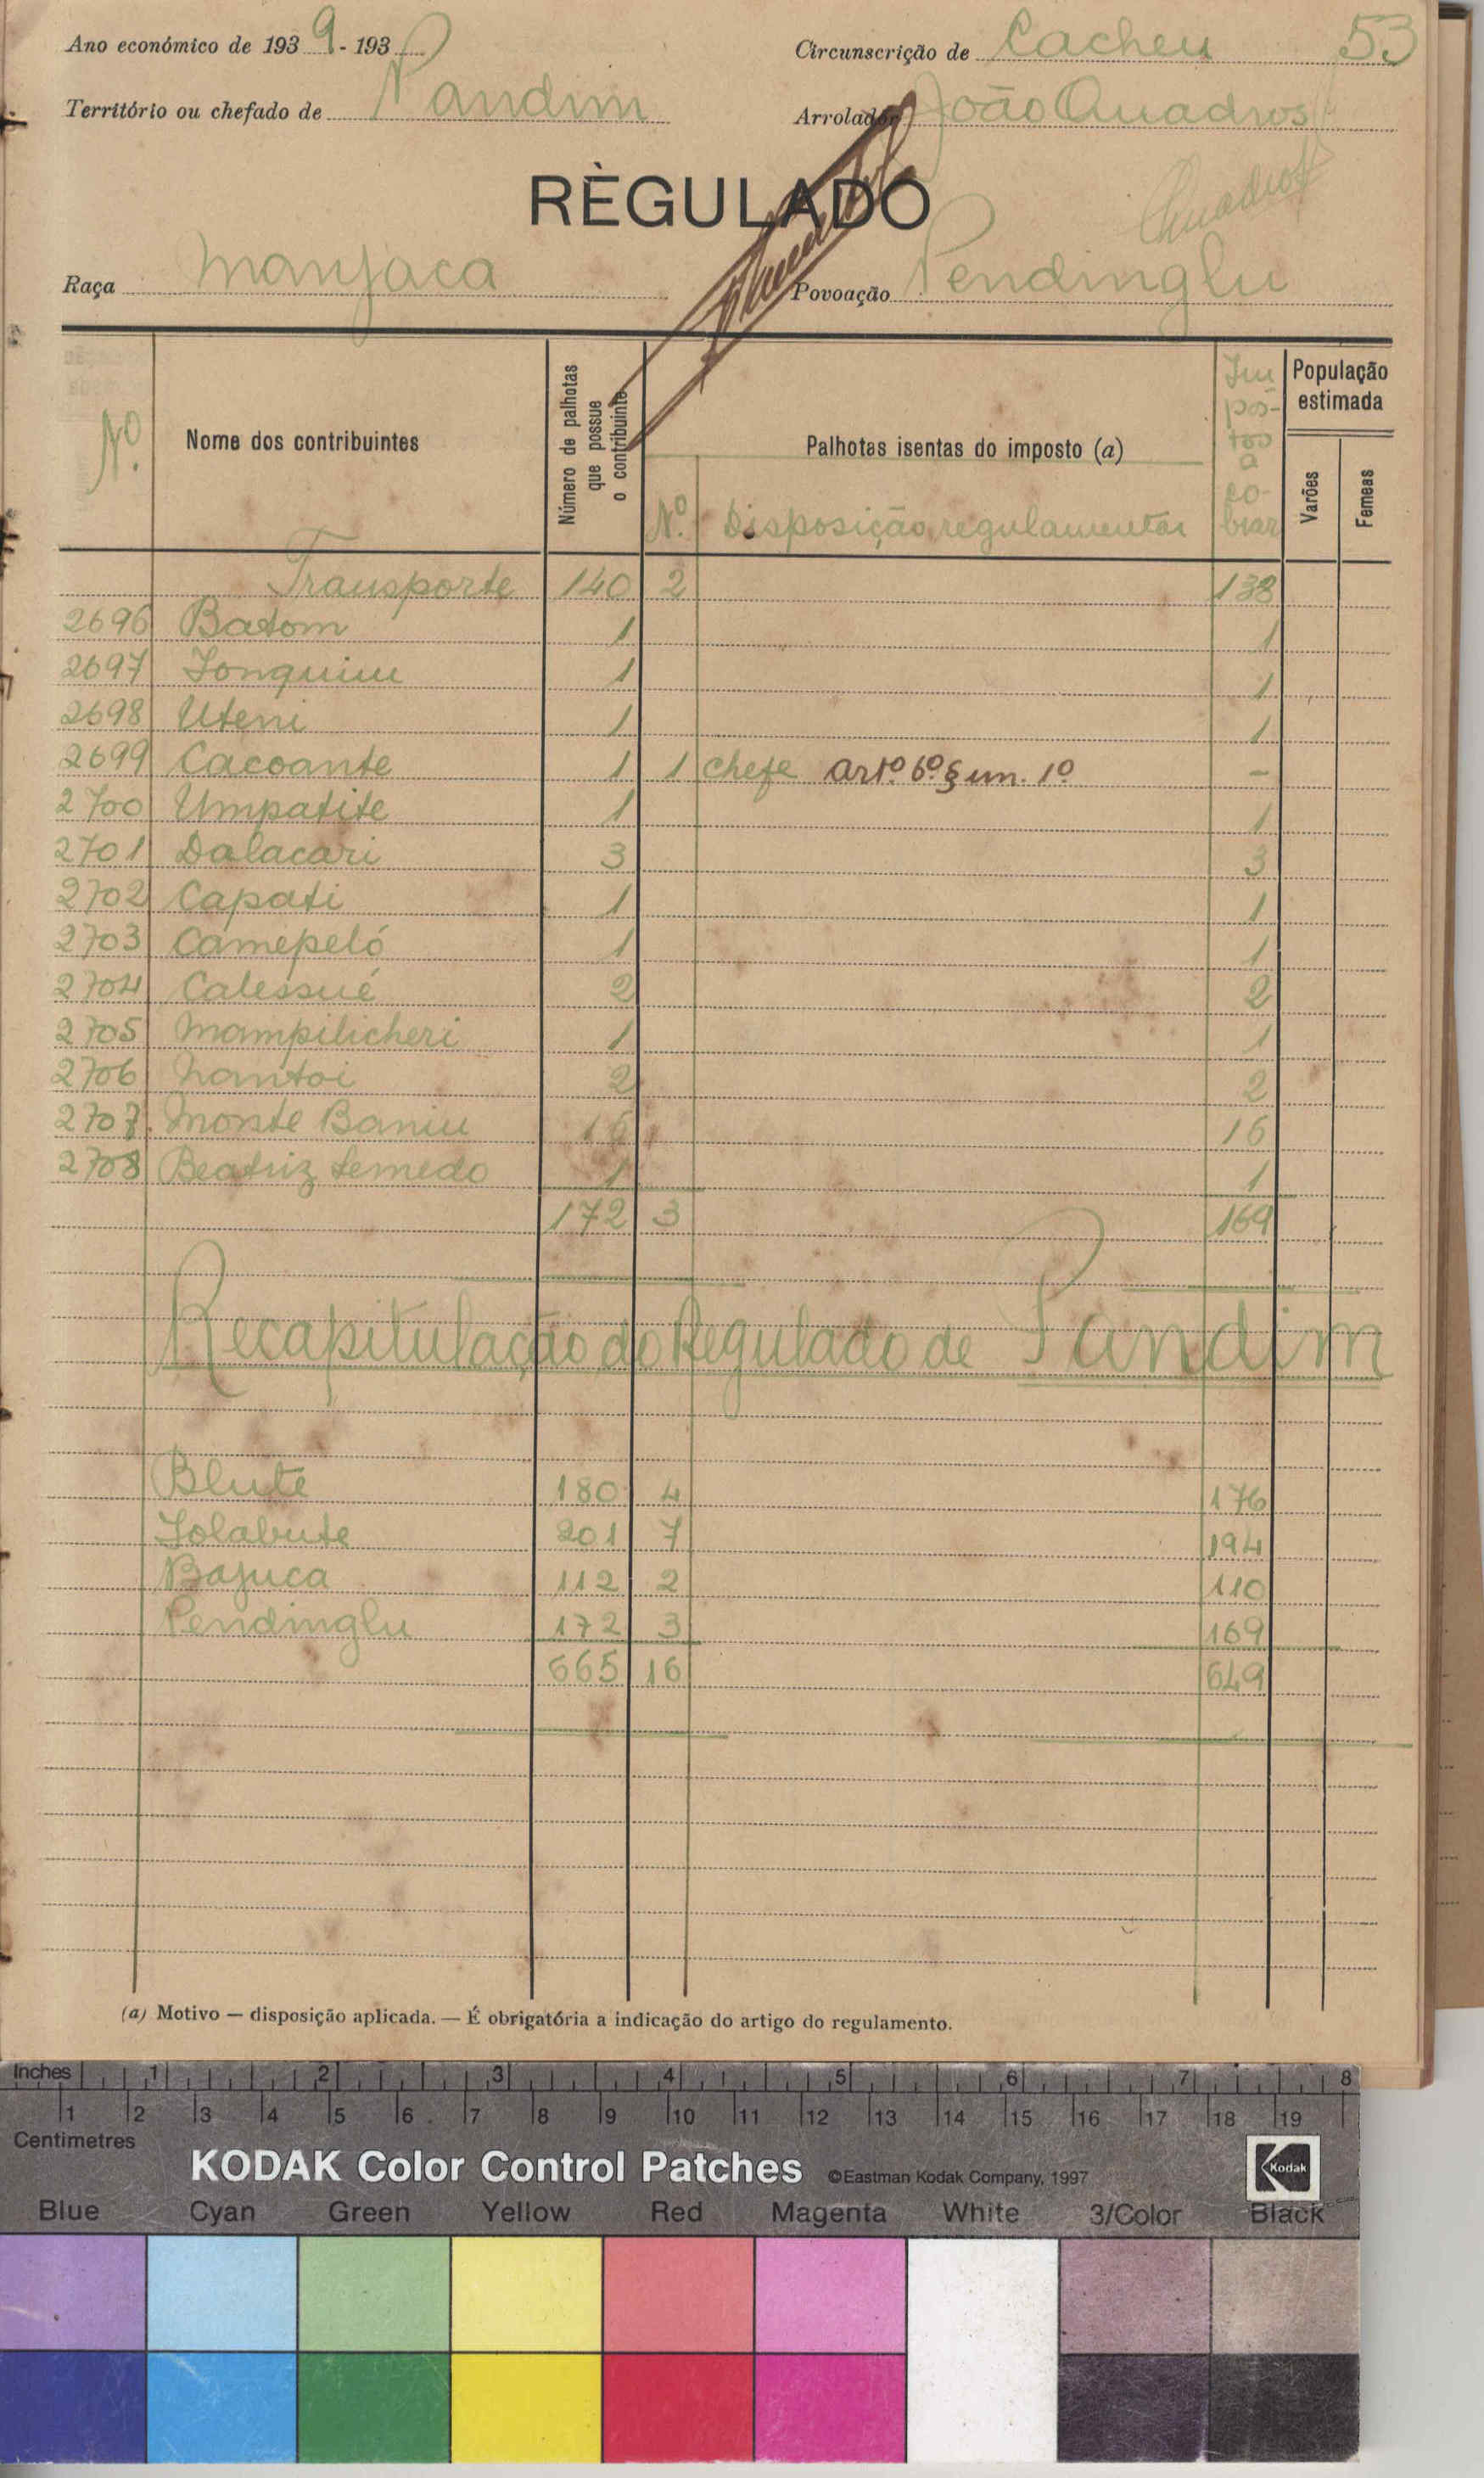 Ano económico de 1939-193
Circunscrição de Cacheu 53
Território ou chefado de Pandim
Arrolador João Quadros
RÈGULADO
Quadros
Raça Manjaca
Povoação Pendinglu
Nº
Nome dos contribuintes
Número de palhotas que possue o contribuinte
Palhotas isentas do imposto (a)
Nº Disposição regulamentar
Im
pos-
tos
a
co-
brar
População estimada
Varões
Femeas
Transporte 140 2 138
2696 Batom 1 1
2697 Jonquim 1 1
2698 Uteni 1 1
2699 Cacoante 1 1 Chefe artº 6º § un. 1º -
2700 Umpatite 1 1
2701 Dalacari 3 3
2702 Capati 1 1
2703 Camepeló 1 1
2704 Calessué 2 2
2705 Mampilicheri 1 1
2706 Nantoi 2 2
2707 Monte Baniu 16 16
2708 Beatriz Semedo 1 1
172 3 169
Recapitulação do Regulado de Pandim
Blute 180 4 176
Jolabute 201 7 194
Bajuca 112 2 110
Pendinglu 172 3 169
665 16 649
(a) Motivo — disposição aplicada. — É obrigatória a indicação do artigo do regulamento.
Inches 1 2 3 4 5 6 7 8
1 2 3 4 5 6 7 8 9 10 11 12 13 14 15 16 17 18 19
Centimetres
KODAK Color Control Patches ©Eastman Kodak Company, 1997 Kodak
Blue Cyan Green Yellow Red Magenta White 3/Color Black